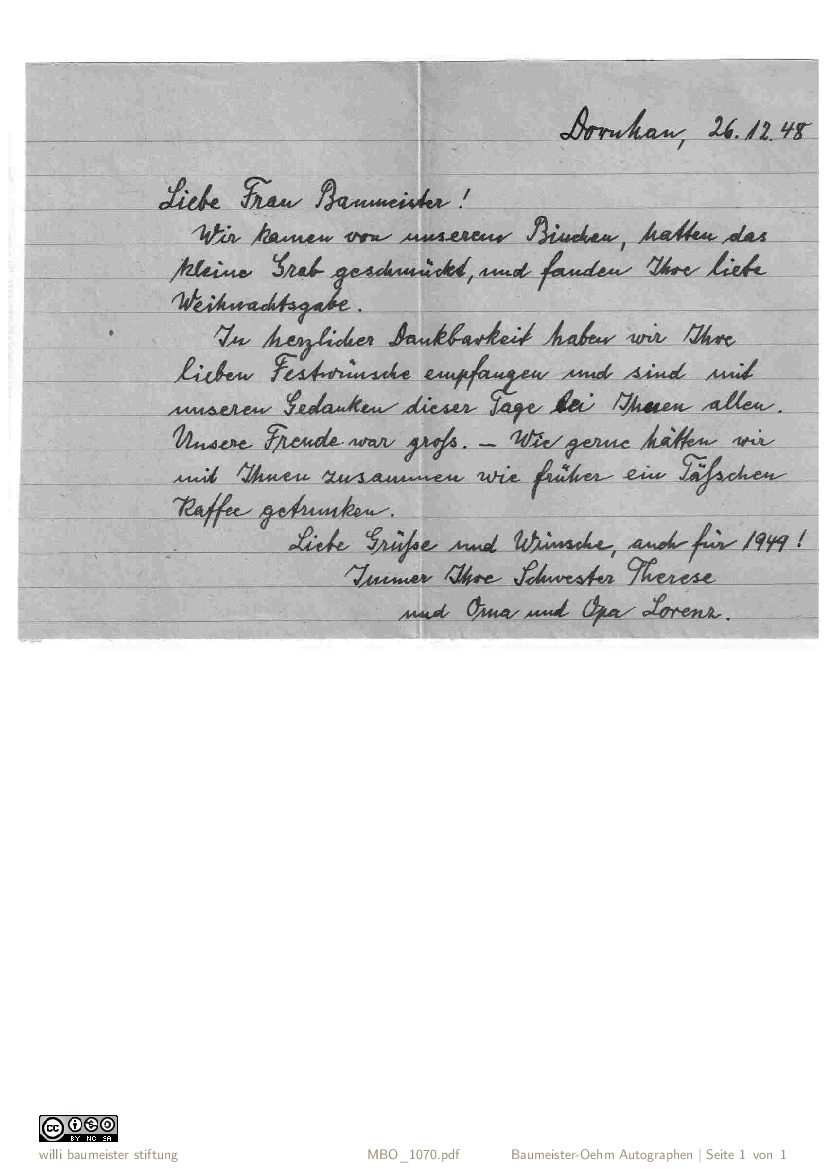 Dornhan, 26.12.48
Liebe Frau Baumeister!
Wir kamen von unserem Binchen, hatten das
kleine Grab geschmückt, und fanden Ihre liebe
Weihnachtsgabe.
In herzlicher Dankbarkeit haben wir Ihre
lieben Festwünsche empfangen und sind mit
unseren Gedanken dieser Tage bei Ihnen allen.
Unsere Freude war groß. – Wie gerne hätten wir
mit Ihnen zusammen wie früher ein Täßchen
Kaffee getrunken.
Liebe Grüße und Wünsche, auch für 1949!
Immer Ihre Schwester Therese
und Oma und Opa Lorenz.
CC BY NC SA
willi baumeister stiftung MBO_1070.pdf Baumeister-Oehm Autographen | Seite 1 von 1